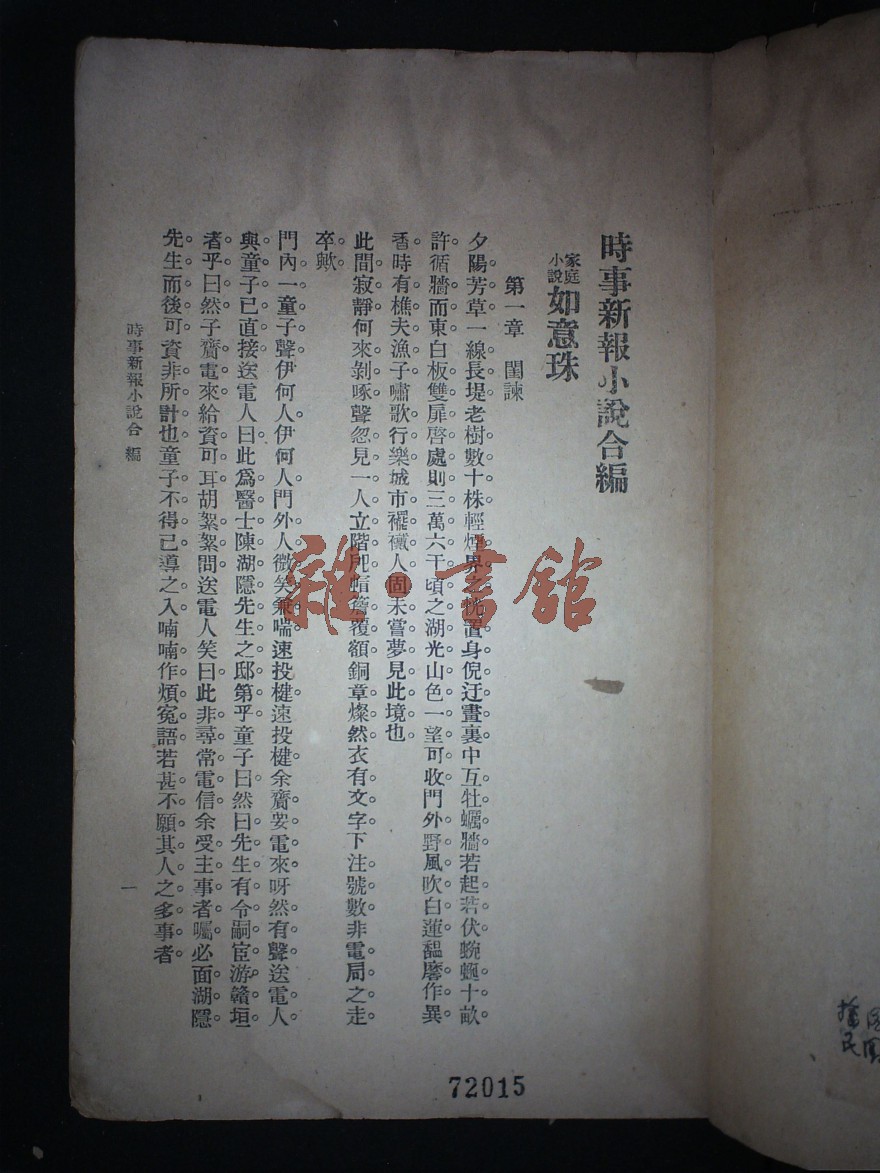 時事新報小說合編
家庭小說 如意珠
第一章 閨諫
夕陽芳草一線長堤老樹數十株輕煙界之恍置身倪迂畫裏中互牡蠣牆若起若伏蜿蜒十畝
許循牆而東白板雙扉啓處則三萬六千頃之湖光山色一望可收門外野風吹白蓮馧麐作異
香時有樵夫漁子嘯歌行樂城市襬襶人固未嘗夢見此境也
此間寂靜何來剝啄聲忽見一人立階覆額銅章燦然衣有文字下注號數非電局之走
卒歟
門內一童子聲伊何人伊何人門外人微笑兼喘速投楗速投楗余齎要電來呀然有聲送電人
與童子已直接送電人曰此爲醫士陳湖隱先生之邸第乎童子曰然曰先生有令嗣宦游贛垣
者乎曰然子齎電來給資可耳胡絮絮問送電人笑曰此非尋常電信余受主事者囑必面湖隱
先生而後可資非所計也童子不得已導之入喃喃作煩寃語若甚不願其人之多事者
時事新報小說合編
一
72015
雜·書館